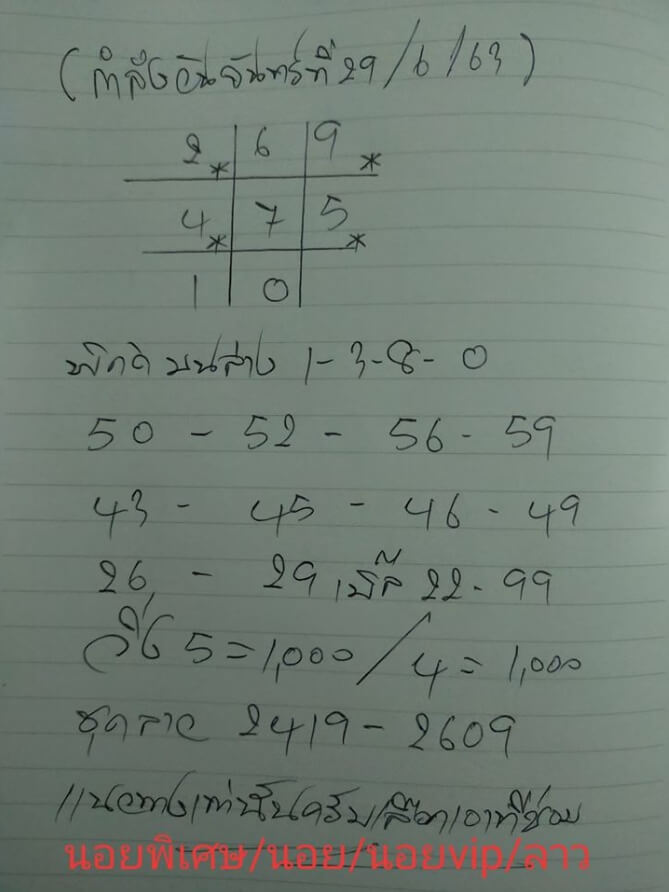 (กำลังวันจันทร์ที่ 29/6/63)
2* 6 9*
4* 7 5*
1 0
พิกัด บนล่าง 1-3-8-0
50 - 52 - 56 - 59
43 - 45 - 46 - 49
26 - 29 เบิ้ล 22 - 99
วิ่ง 5 = 1,000 / 4 = 1,000
ชุดลาว 2419 - 2609
แนวทางเท่านั้นครับเลือกเอาที่ชอบ
นอยพิเศษ/นอย/นอยvip/ลาว